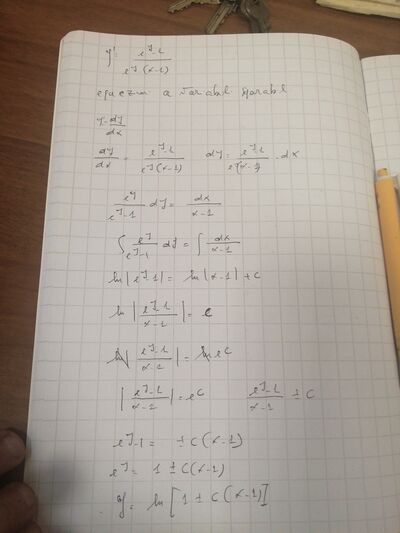 y' = e^y-1 / e^y(x-1)
equazion a variabil separabl
y' = dy/dx
dy/dx = e^y-1 / e^y(x-1)   dy = e^y-1 / e^y(x-1) · dx
e^y / e^y-1 dy = dx / x-1
∫ e^y / e^y-1 dy = ∫ dx / x-1
ln|e^y-1| = ln|x-1| + c
ln | e^y-1 / x-1 | = c
ln | e^y-1 / x-1 | = ln e^c
| e^y-1 / x-1 | = e^c   e^y-1 / x-1 ± c
e^y-1 = ±c(x-1)
e^y = 1 ± c(x-1)
y = ln[1 ± c(x-1)]